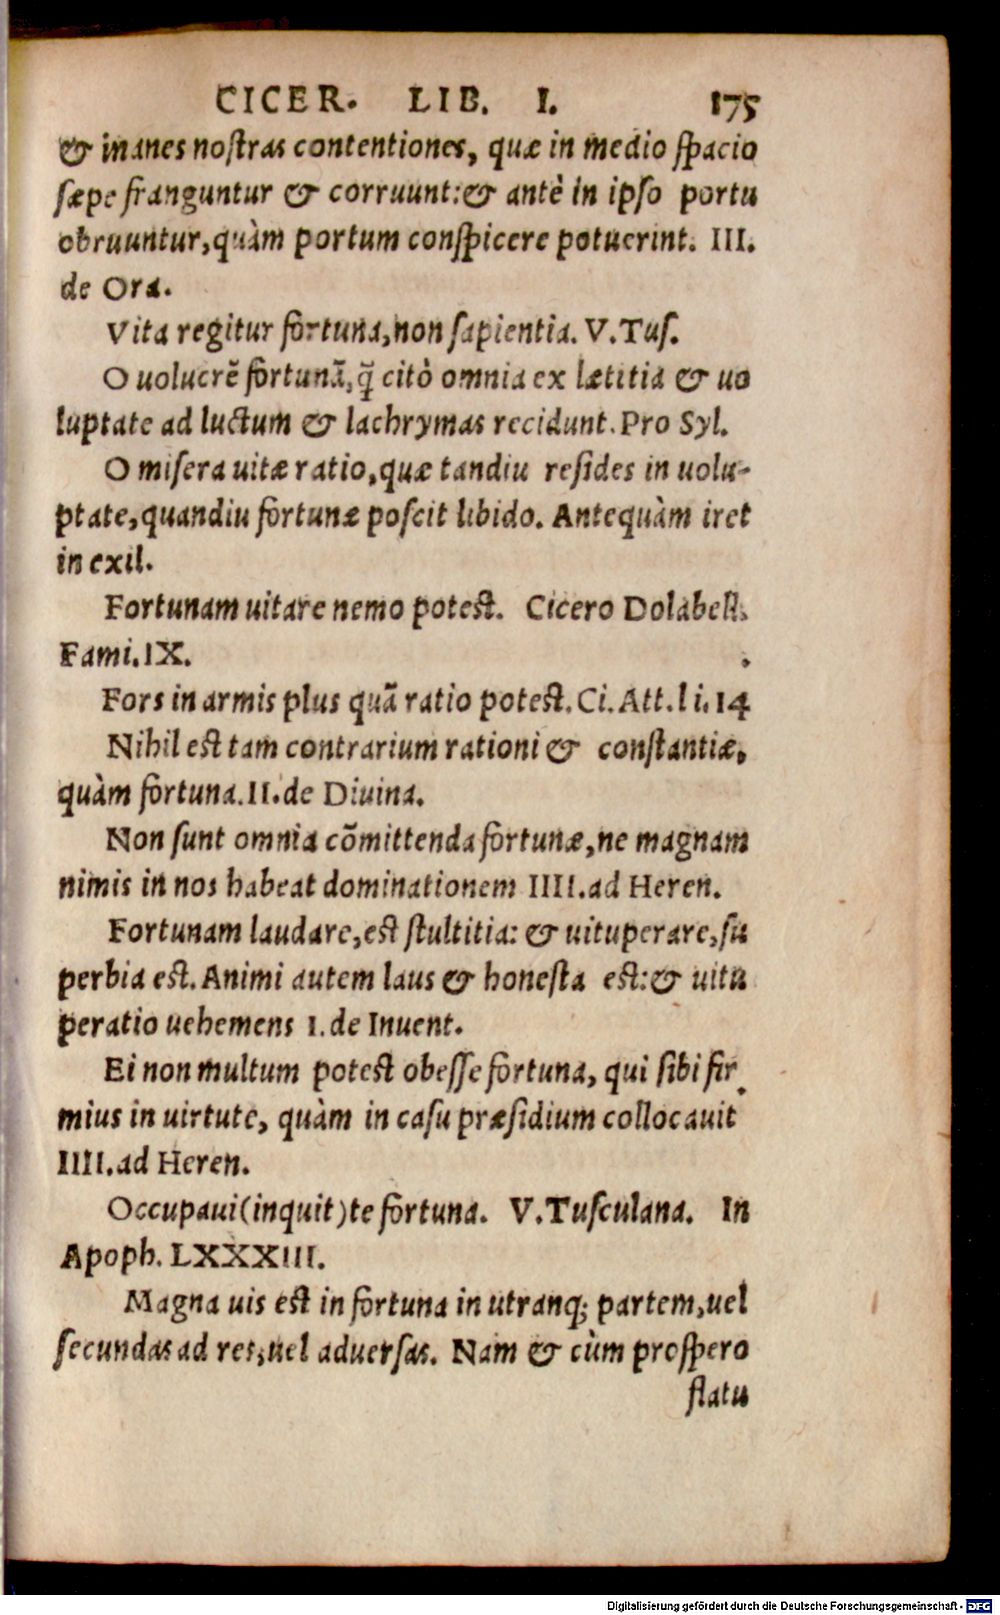 CICER. LIB. I. 175
& inanes nostras contentiones, quæ in medio spacio
sæpe franguntur & corruunt:& antè in ipso portu
obruuntur,quàm portum conspicere potuerint. III.
de Ora.
Vita regitur fortuna,non sapientia. V.Tus.
O uolucrẽ fortunã,q̃ citò omnia ex lætitia & uo
luptate ad luctum & lachrymas recidunt.Pro Syl.
O misera uitæ ratio,quæ tandiu resides in uolu-
ptate,quandiu fortunæ poscit libido. Antequàm iret
in exil.
Fortunam uitare nemo potest. Cicero Dolabell.
Fami.IX.
Fors in armis plus quã ratio potest.Ci.Att.li.14
Nihil est tam contrarium rationi & constantiæ,
quàm fortuna.II.de Diuina.
Non sunt omnia cõmittenda fortunæ,ne magnam
nimis in nos habeat dominationem IIII.ad Heren.
Fortunam laudare,est stultitia: & uituperare,su
perbia est.Animi autem laus & honesta est:& uitu
peratio uehemens I.de Inuent.
Ei non multum potest obesse fortuna, qui sibi fir
mius in uirtute, quàm in casu præsidium collocauit
IIII.ad Heren.
Occupaui(inquit)te fortuna. V.Tusculana. In
Apoph.LXXXIII.
Magna uis est in fortuna in utranq; partem,uel
secundas ad res,uel aduersas. Nam & cùm prospero
flatu
Digitalisierung gefördert durch die Deutsche Forschungsgemeinschaft - DFG